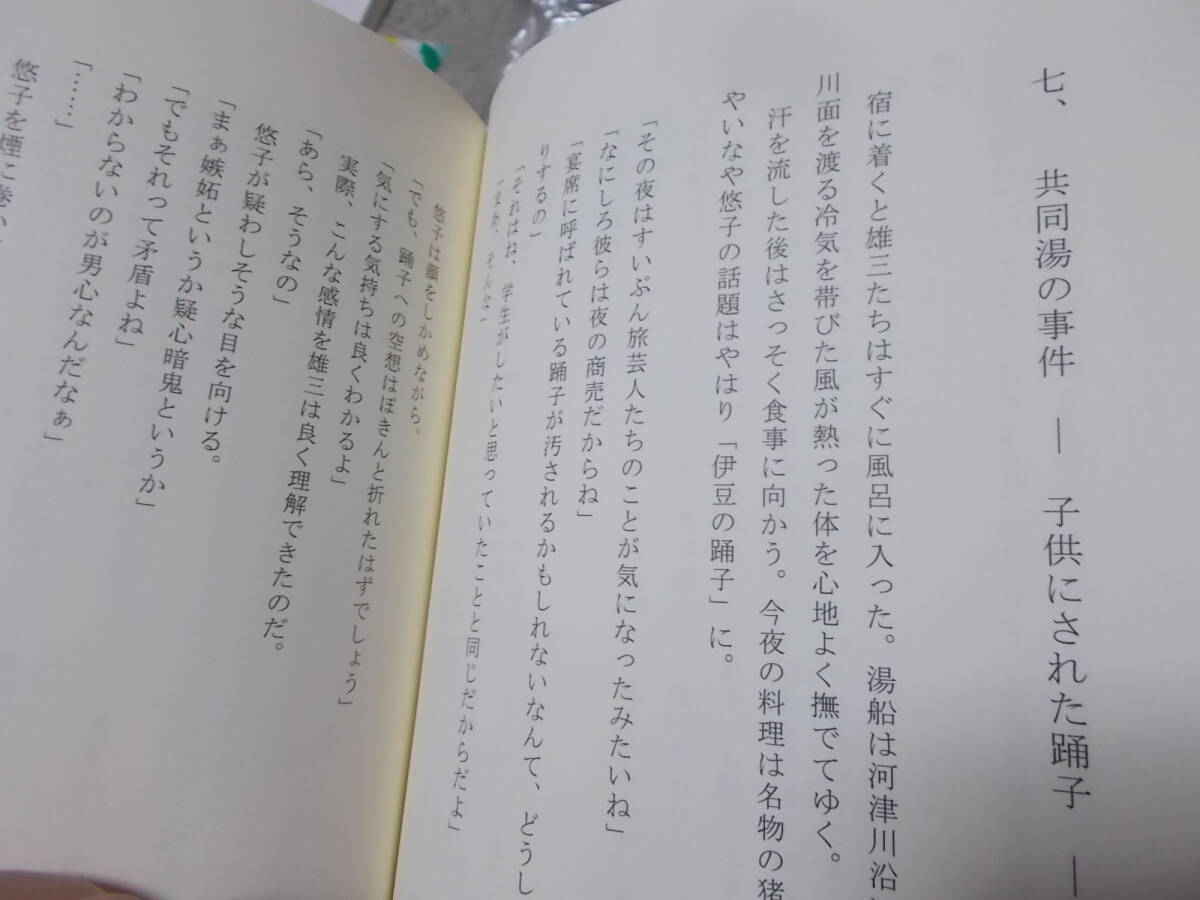 七、　共同湯の事件　―　子供にされた踊子　―
宿に着くと雄三たちはすぐに風呂に入った。湯船は河津川沿
川面を渡る冷気を帯びた風が熱った体を心地よく撫でてゆく。
汗を流した後はさっそく食事に向かう。今夜の料理は名物の猪
やいなや悠子の話題はやはり「伊豆の踊子」に。
「その夜はずいぶん旅芸人たちのことが気になったみたいね」
「なにしろ彼らは夜の商売だからね」
「宴席に呼ばれている踊子が汚されるかもしれないなんて、どうし
りするの」
「それはね、学生がしたいと思っていたことと同じだからだよ」
「まあ、そんな」
悠子は顔をしかめながら。
「でも、踊子への空想はぽきんと折れたはずでしょう」
「気にする気持ちは良くわかるよ」
実際、こんな感情を雄三は良く理解できたのだ。
「あら、そうなの」
悠子が疑わしそうな目を向ける。
「まぁ嫉妬というか疑心暗鬼というか」
「でもそれって矛盾よね」
「わからないのが男心なんだなぁ」
「……」
悠子を煙に巻い